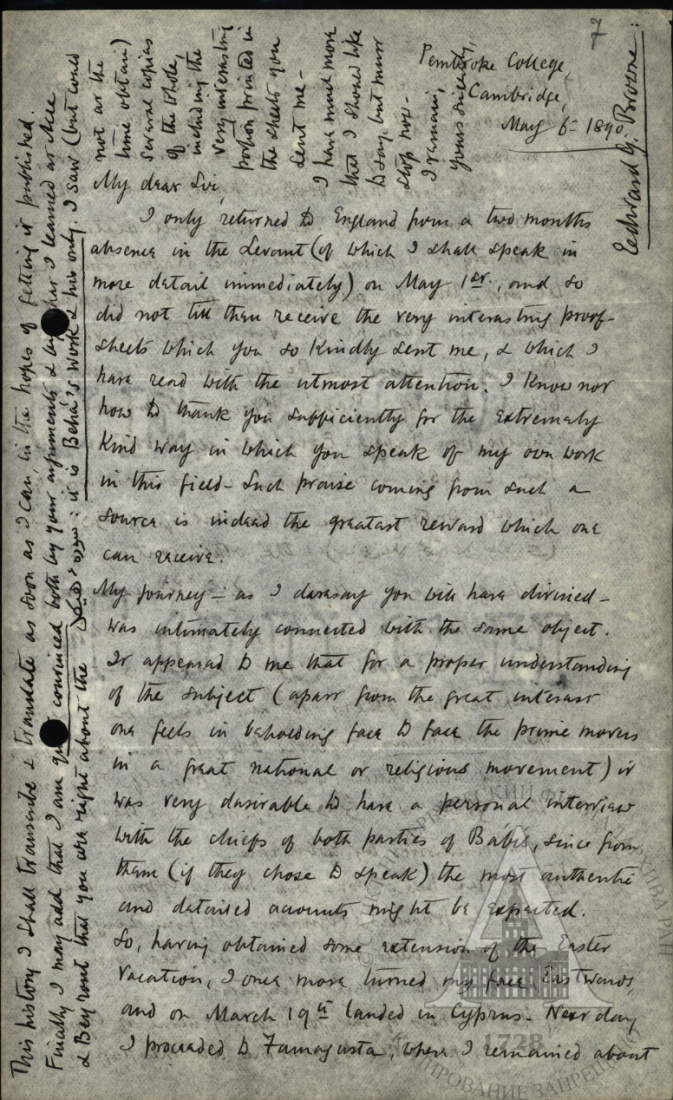 7
Pembroke College,
Cambridge,
May 6th 1890.
My dear Sir,
I only returned to England from a two months
absence in the Levant (of which I shall speak in
more detail immediately) on May 1st., and so
did not till then receive the very interesting proof-
sheets which you so kindly sent me, & which I
have read with the utmost attention. I know not
how to thank you sufficiently for the extremely
kind way in which you speak of my own work
in this field - Such praise coming from such a
source is indeed the greatest reward which one
can receive.
My journey - as I daresay you will have divined -
was intimately connected with the same object.
It appeared to me that for a proper understanding
of the subject (apart from the great interest
one feels in beholding face to face the prime movers
in a great national or religious movement) it
was very desirable to have a personal interview
with the chiefs of both parties of Bábís, since from
them (if they chose to speak) the most authentic
and detailed accounts might be expected.
So, having obtained some extension of the Easter
Vacation, I once more turned my face Eastwards,
and on March 19th landed in Cyprus. Next day
I proceeded to Famagusta, where I remained about
This history I shall transcribe & translate as soon as I can, in the hopes of getting it published.
Finally I may add that I am convinced both by your arguments & by I learned at Acre
& Beyrout that you are right about the : it is Behá's work & his only. I saw (but could
not at the
time obtain)
several copies
of the whole,
including the
very interesting
portion printed in
the sheets you
sent me -
I have much more
that I should like
to say, but must
stop now -
I remain,
yours sincerely,
Edward G. Browne.
1728